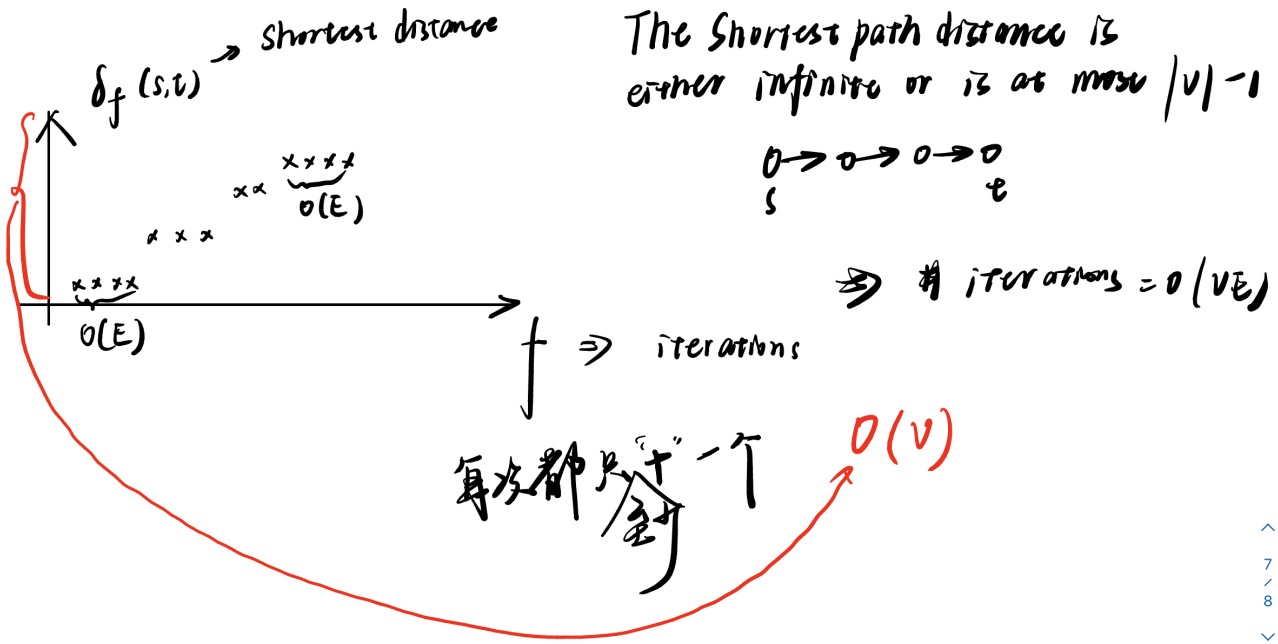 δ_f (s,t) → shortest distance
The Shortest path distance is
either infinite or is at most |V|-1
x x x x
O(E)
x x
x x x
x x x x
O(E)
0→0→0→0
s t
⇒ # iterations = O(VE)
f ⇒ iterations
O(V)
每次都只"+"一个
至少
7
/
8